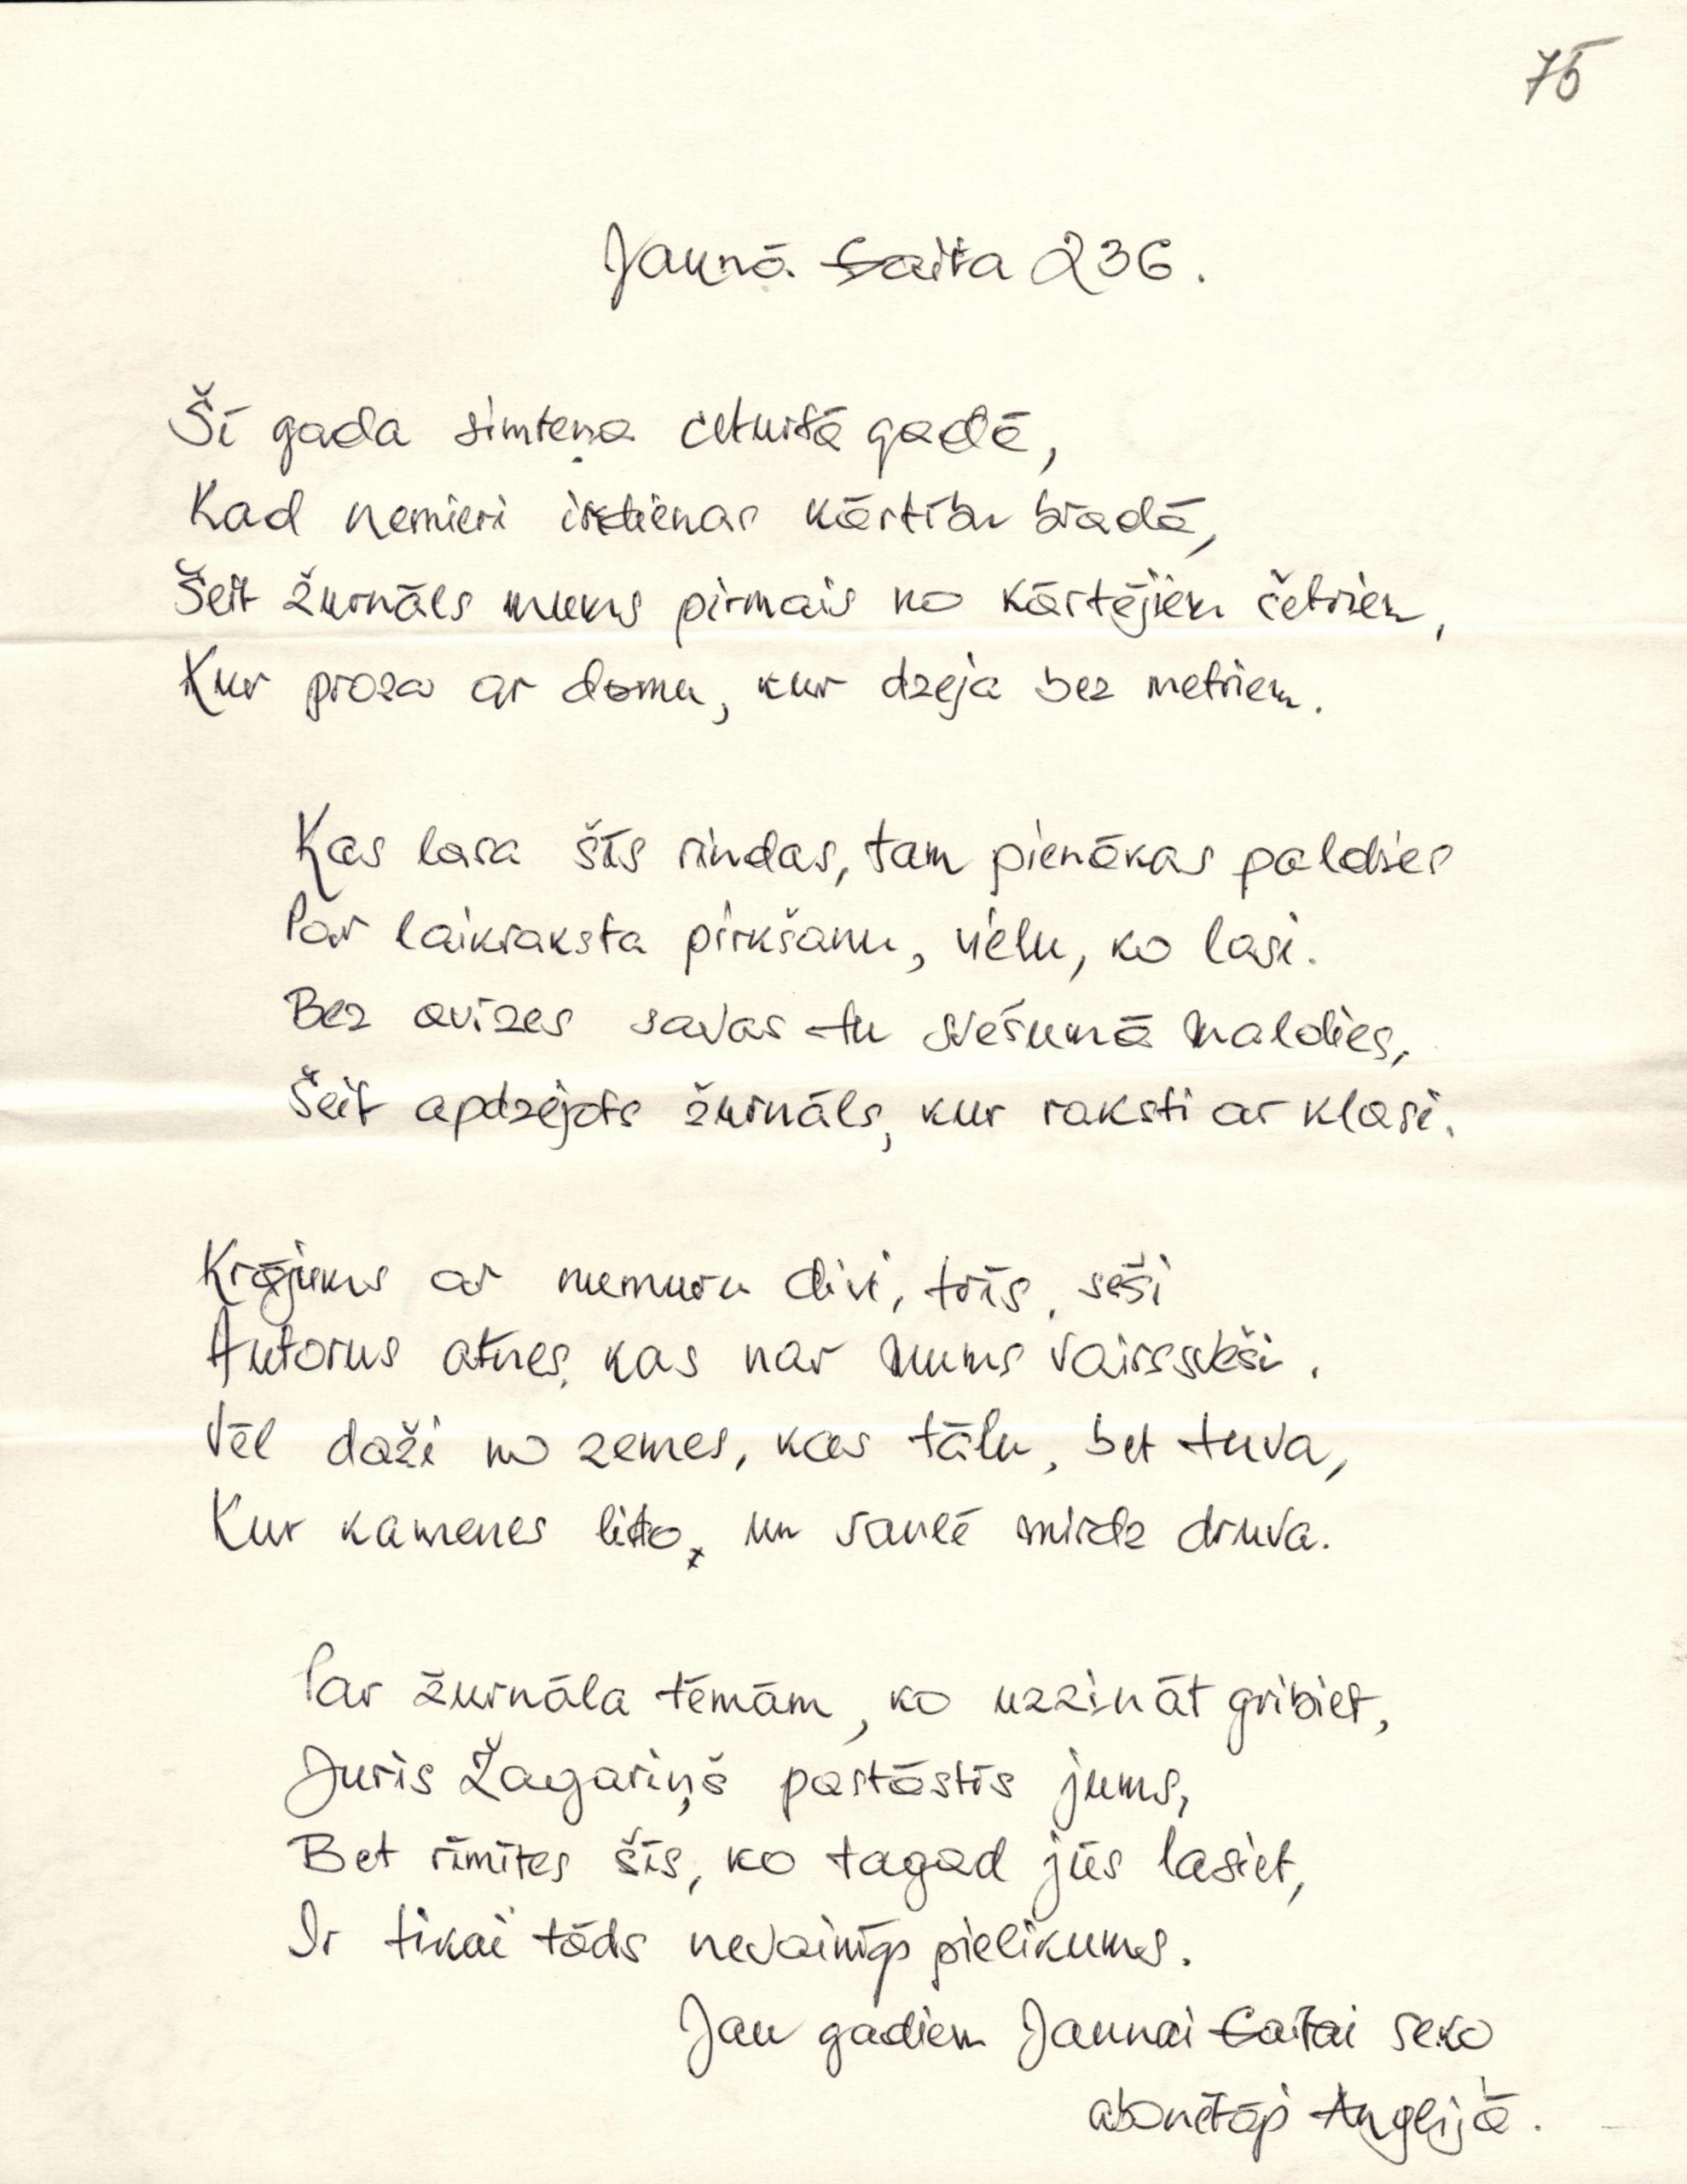 75
Jaunā Gaita 236.
Šī gada simteņa ceturtā gadā,
Kad nemieri ikdienas kārtību bradā,
Šeit žurnāls mums pirmais no kārtējiem četriem,
Kur proza ar domu, kur dzeja bez metriem.
Kas lasa šīs rindas, tam pienākas paldies
Par laikraksta pirkšanu, vielu, ko lasi.
Bez avīzes savas tu svešumā maldies,
Šeit apdzejots žurnāls, kur raksti ar klasi.
Krājums ar numuru divi, trīs, seši
Autorus atnes, kas nav mums vairs sveši.
Vēl daži no zemes, kas tālu, bet tuva,
Kur kamenes lido, un saulē mirdz druva.
Par žurnāla tēmām, ko uzzināt gribiet,
Juris Žagariņš pastāstīs jums,
Bet rīmītes šīs, ko tagad jūs lasiet,
Ir tikai tāds nevainīgs pielikums.
Jau gadiem Jaunai Gaitai seko
abonētāji Anglijā.